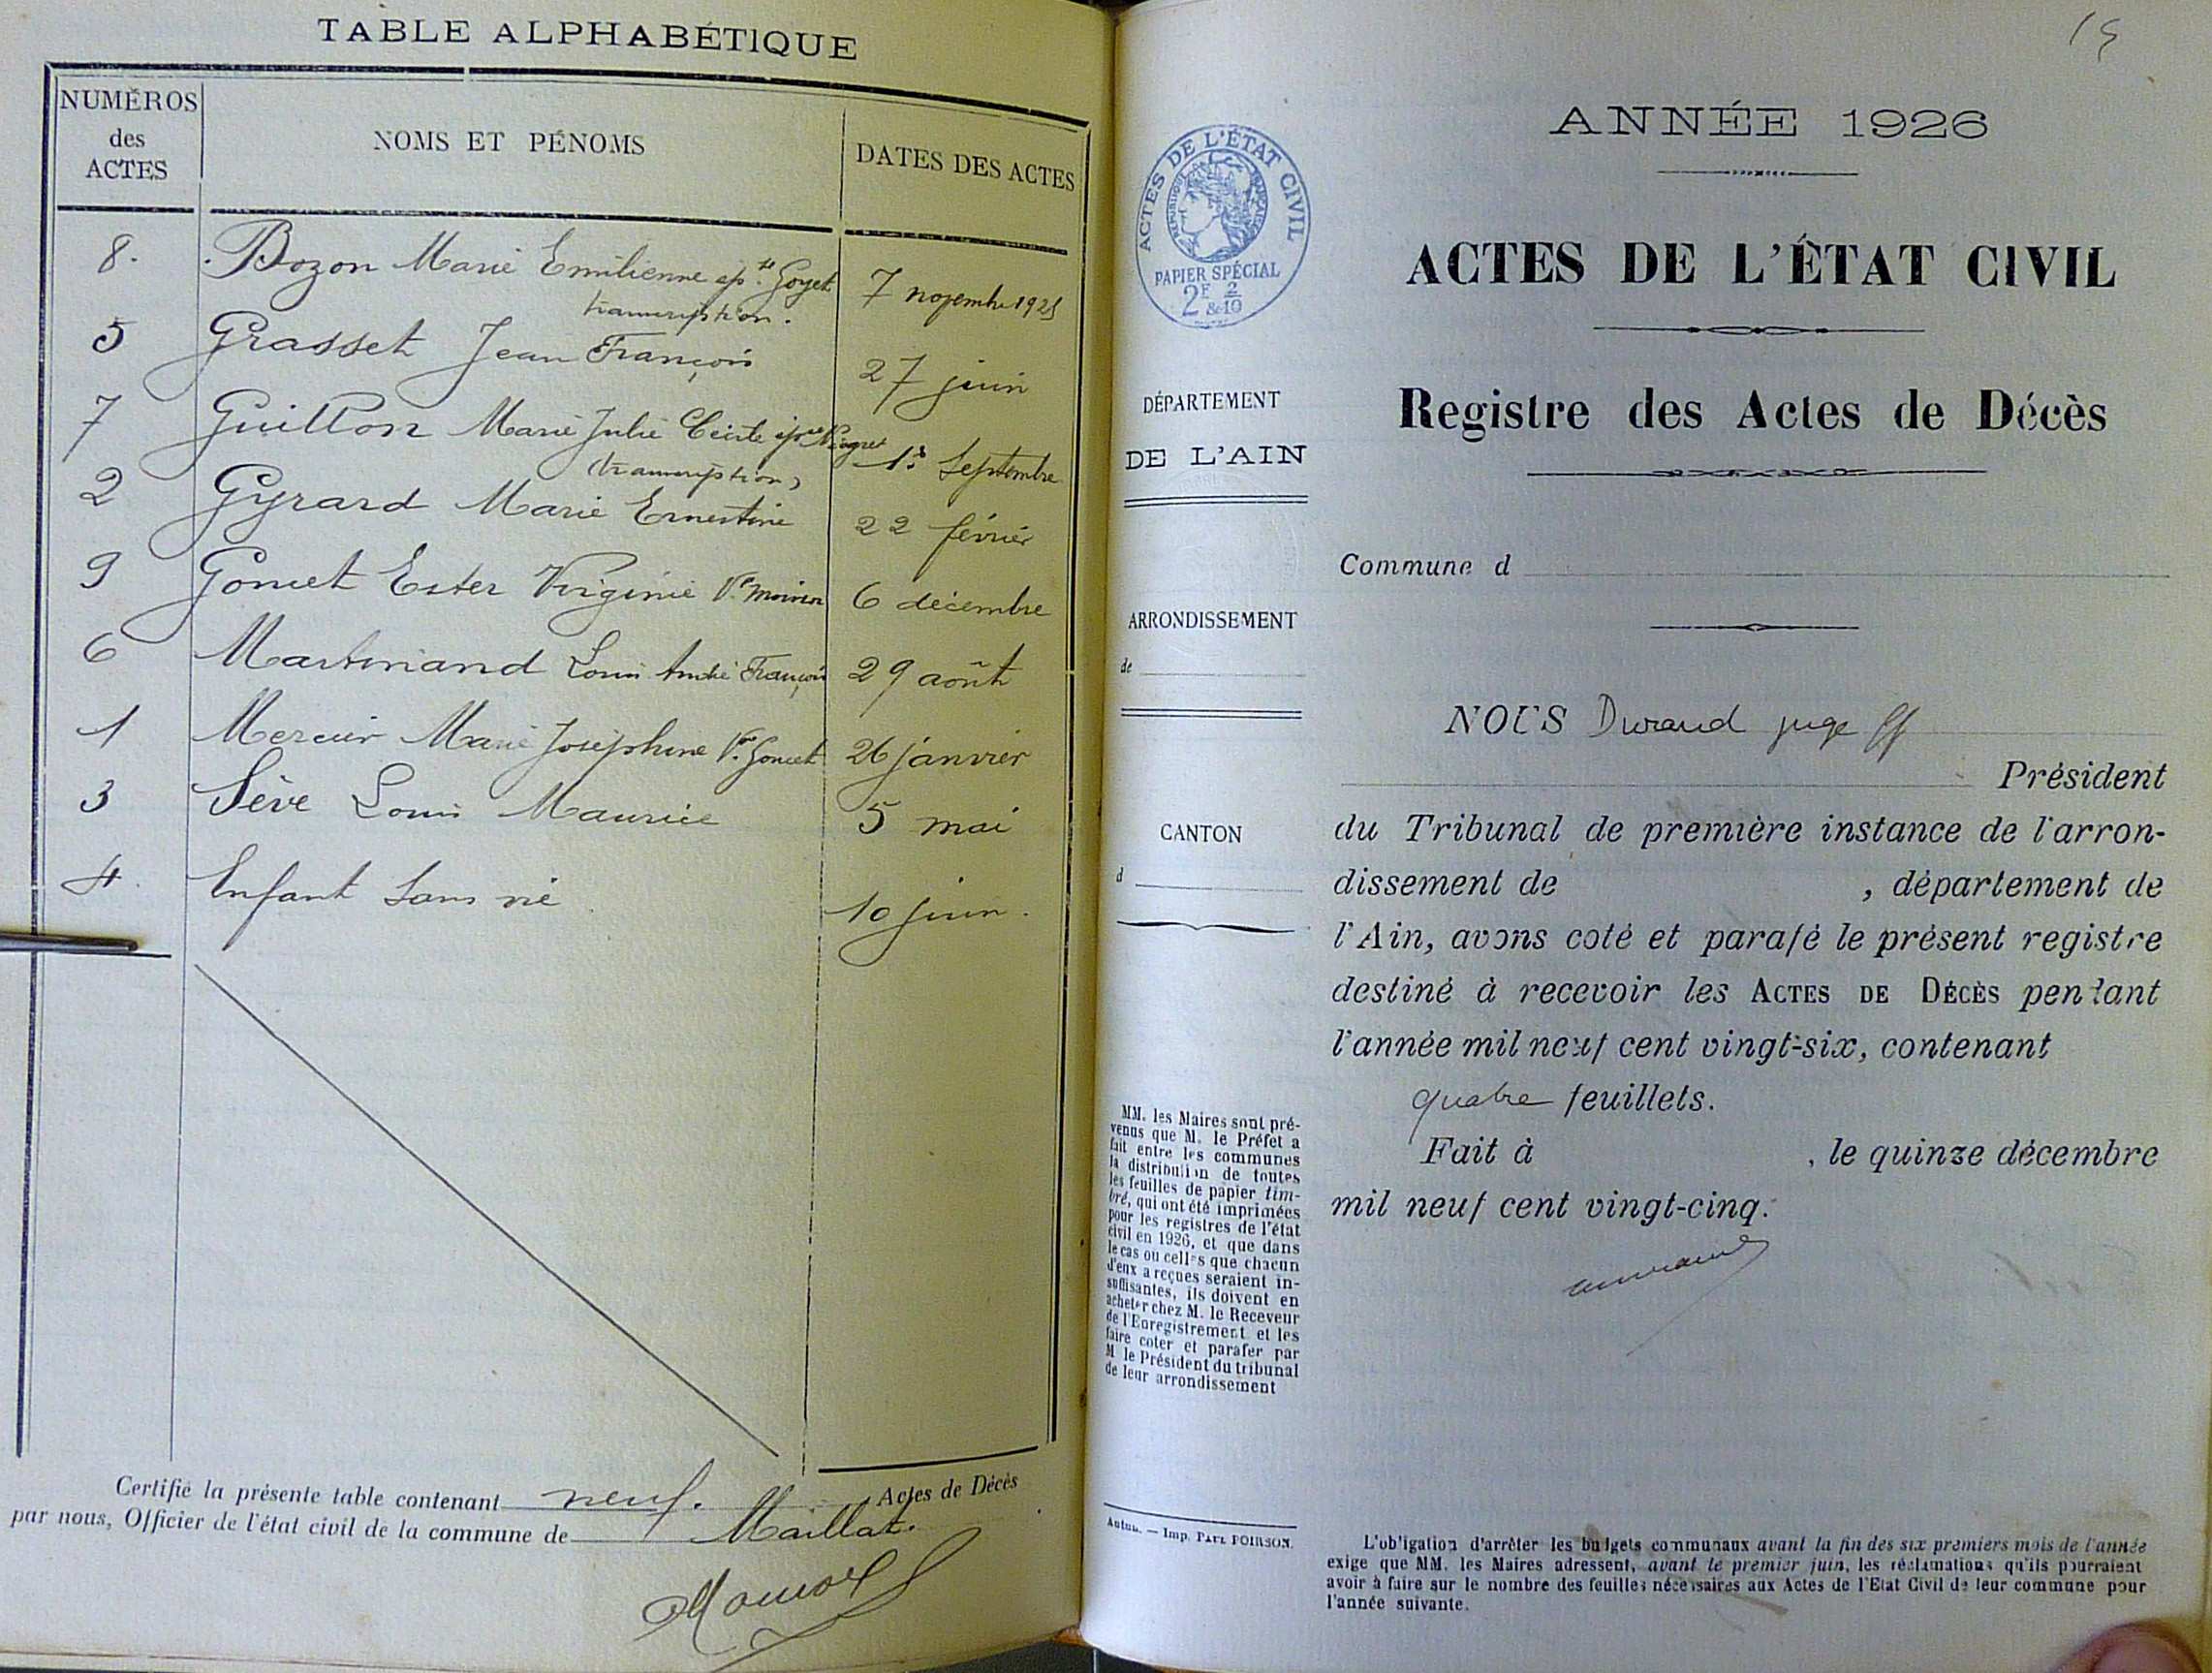 TABLE ALPHABÉTIQUE
NUMÉROS des ACTES
NOMS ET PÉNOMS
DATES DES ACTES
8. Bozon Marie Emilienne ép.se Goyet 7 novembre 1925
transcription.
5 Grasset Jean François 27 juin
7 Guillon Marie Julie épse 1er Septembre
(transcription)
2 Gyrard Marie Ernestine 22 février
9 Goncet Ester Virginie Ve 6 décembre
6 Martinand Louis André François 29 août
1 Mercier Marie Joséphine Vve Goncet 26 janvier
3 Sève Louis Maurice 5 mai
4. Enfant sans vie 10 juin.
Certifié la présente table contenant neuf. Actes de Décès
par nous, Officier de l'état civil de la commune de Maillat.
15
ANNÉE 1926
ACTES DE L'ÉTAT CIVIL
RÉPUBLIQUE FRANÇAISE
PAPIER SPÉCIAL
2F & 2/10
ACTES DE L'ÈTAT CIVIL
Registre des Actes de Décès
DÉPARTEMENT
DE L'AIN
ARRONDISSEMENT
de
CANTON
d
MM. les Maires sont pré-
venus que M. le Préfet a
fait entre les communes
la distribution de toutes
les feuilles de papier tim-
bré, qui ont été imprimées
pour les registres de l'état
civil en 1926, et que dans
le cas ou celles que chacun
d'eux a reçues seraient in-
suffisantes, ils doivent en
acheter chez M. le Receveur
de l'Enregistrement et les
faire coter et parafer par
M le Président du tribunal
de leur arrondissement
Autun. — Imp. PAUL POIRSON.
Commune d
NOUS Durand juge ff
Président
du Tribunal de première instance de l'arron-
dissement de , département de
l'Ain, avons coté et parafé le présent registre
destiné à recevoir les ACTES DE DÉCÈS pendant
l'année mil neuf cent vingt-six, contenant
quatre feuillets.
Fait à , le quinze décembre
mil neuf cent vingt-cinq.
L'obligation d'arrêter les budgets communaux avant la fin des six premiers mois de l'année
exige que MM. les Maires adressent, avant le premier juin, les réclamations qu'ils pourraient
avoir à faire sur le nombre des feuilles nécessaires aux Actes de l'Etat Civil de leur commune pour
l'année suivante.